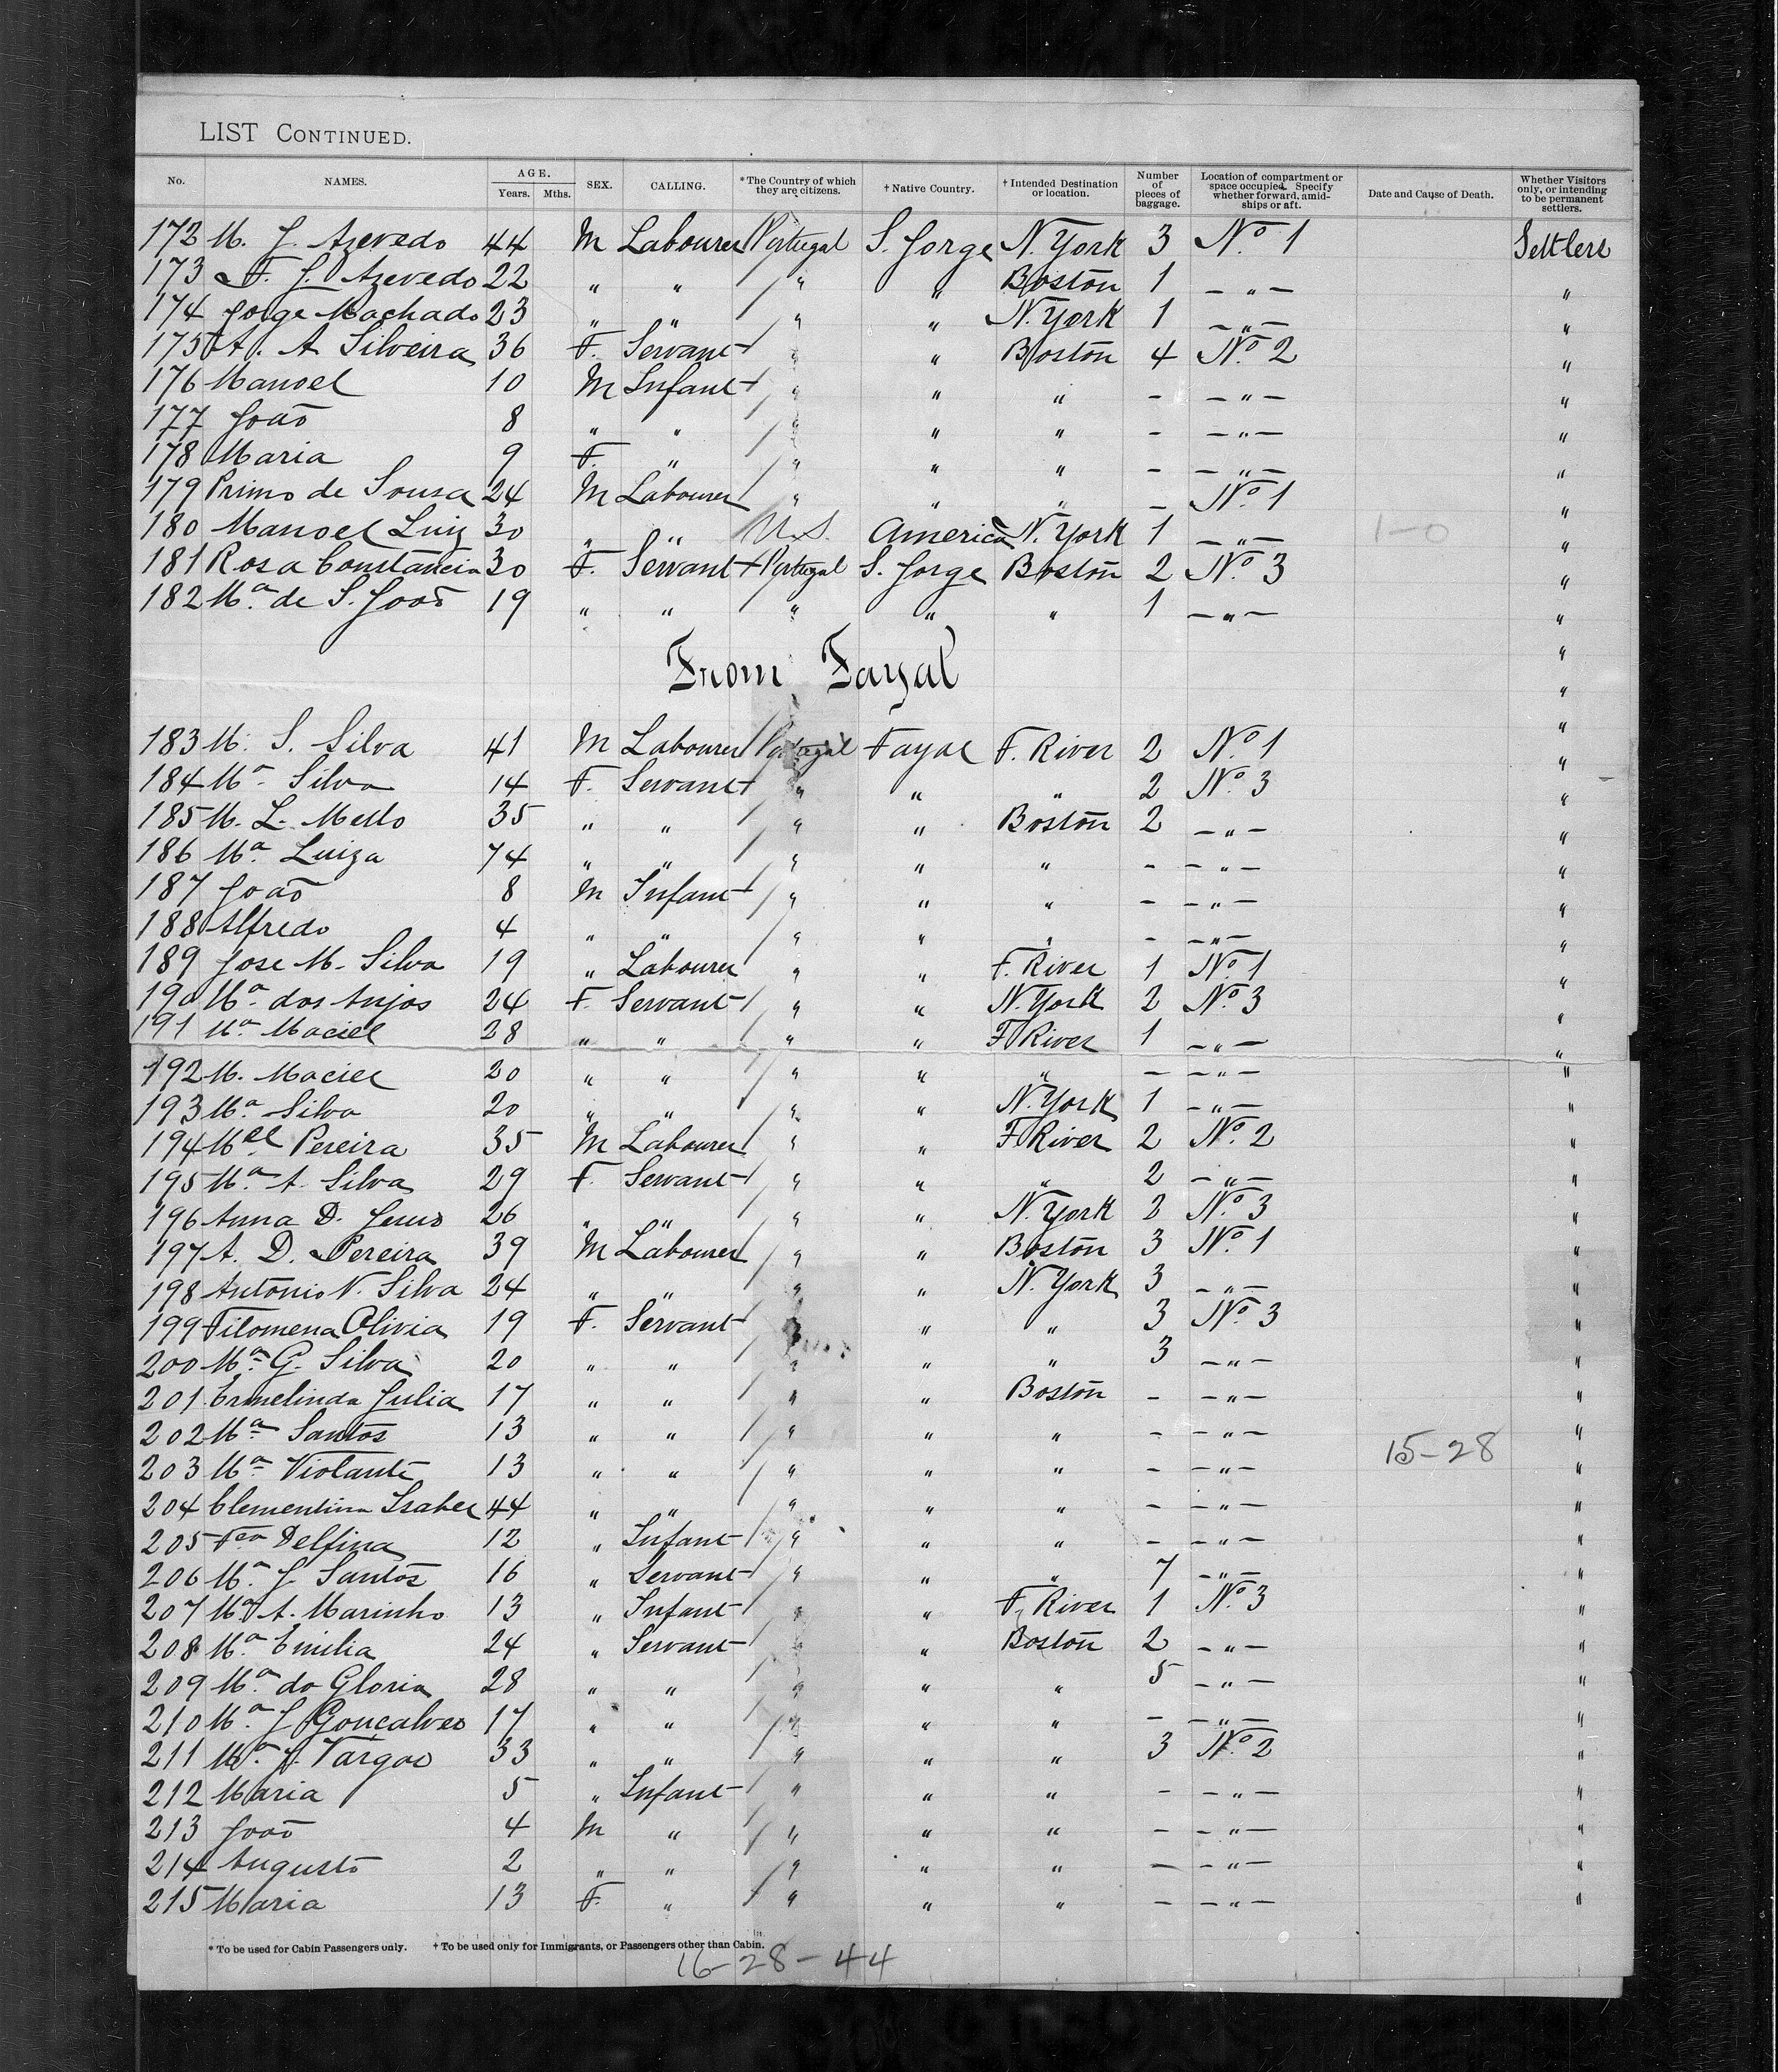 LIST CONTINUED.
No. NAMES. AGE. Years. Mths. SEX. CALLING. * The Country of which they are citizens. † Native Country. † Intended Destination or location. Number of pieces of baggage. Location of compartment or space occupied. Specify whether forward, amidships or aft. Date and Cause of Death. Whether Visitors only, or intending to be permanent settlers.
172 M. J. Azevedo 44 M Labourer Portugal S. Jorge N. York 3 No 1 Settlers
173 F. J. Azevedo 22 " " / " " Boston 1 — " — "
174 Jorge Machado 23 " " / " " N. York 1 — " — "
175 A. A Silveira 36 F. Servant / " " Boston 4 No 2 "
176 Manoel 10 M Infant / " " " - — " — "
177 João 8 " " / " " " - — " — "
178 Maria 9 F. " / " " " - — " — "
179 Primo de Sousa 24 M Labourer / " " " - No 1 "
180 Manoel Luiz 30 " " U.S. America N. York 1 — " — 1-0 "
181 Rosa Constancia 30 F. Servant Portugal S. Jorge Boston 2 No 3 "
182 Ma de S. João 19 " " " " " 1 — " — "
From Fayal
183 M. S. Silva 41 M Labourer / Portugal Fayal F. River 2 No 1 "
184 Ma Silva 14 F. Servant " " " 2 No 3 "
185 M. L. Mello 35 " " / " " Boston 2 — " — "
186 Ma Luiza 74 " " / " " " - — " — "
187 João 8 M Infant / " " " - — " — "
188 Alfredo 4 " " / " " " - — " — "
189 Jose M. Silva 19 " Labourer " " F. River 1 No 1 "
190 Ma dos Anjos 24 F. Servant / " " N. York 2 No 3 "
191 Ma Maciel 28 " " / " " F River 1 — " — "
192 M. Maciel 20 " " / " " " — — " — "
193 Ma Silva 20 " " / " " N. York 1 — " — "
194 Mel Pereira 35 M Labourer / " " F River 2 No 2 "
195 Ma A. Silva 29 F. Servant / " " " 2 — " — "
196 Anna D. Jesus 26 " " / " " N. York 2 No 3 "
197 A. D. Pereira 39 M Labourer / " " Boston 3 No 1 "
198 Antonio N. Silva 24 " " " " N. York 3 — " — "
199 Filomena Olivia 19 F. Servant / " " " 3 No 3 "
200 Ma G. Silva 20 " " / " " " 3 — " — "
201 Ermelinda Julia 17 " " / " " Boston - — " — "
202 Ma Santos 13 " " / " " " - — " — "
203 Ma Violante 13 " " / " " " - — " — 15-28 "
204 Clementina Isabel 44 " " / " " " - — " — "
205 Fca Delfina 12 " Infant / " " " - — " — "
206 Ma J Santos 16 " Servant / " " " 7 — " — "
207 Ma A. Marinho 13 " Infant " " F. River 1 No 3 "
208 Ma Emilia 24 " Servant " " Boston 2 — " — "
209 Ma da Gloria 28 " " / " " " 5 — " — "
210 Ma J Gonçalves 17 " " / " " " — — " — "
211 Ma J. Vargas 33 " " / " " " 3 No 2 "
212 Maria 5 " Infant / " " " - — " — "
213 João 4 M " / " " " — — " — "
214 Augusto 2 " " / " " " — — " — "
215 Maria 13 F. " / " " " — — " — "
* To be used for Cabin Passengers only. † To be used only for Immigrants, or Passengers other than Cabin.
16-28-44